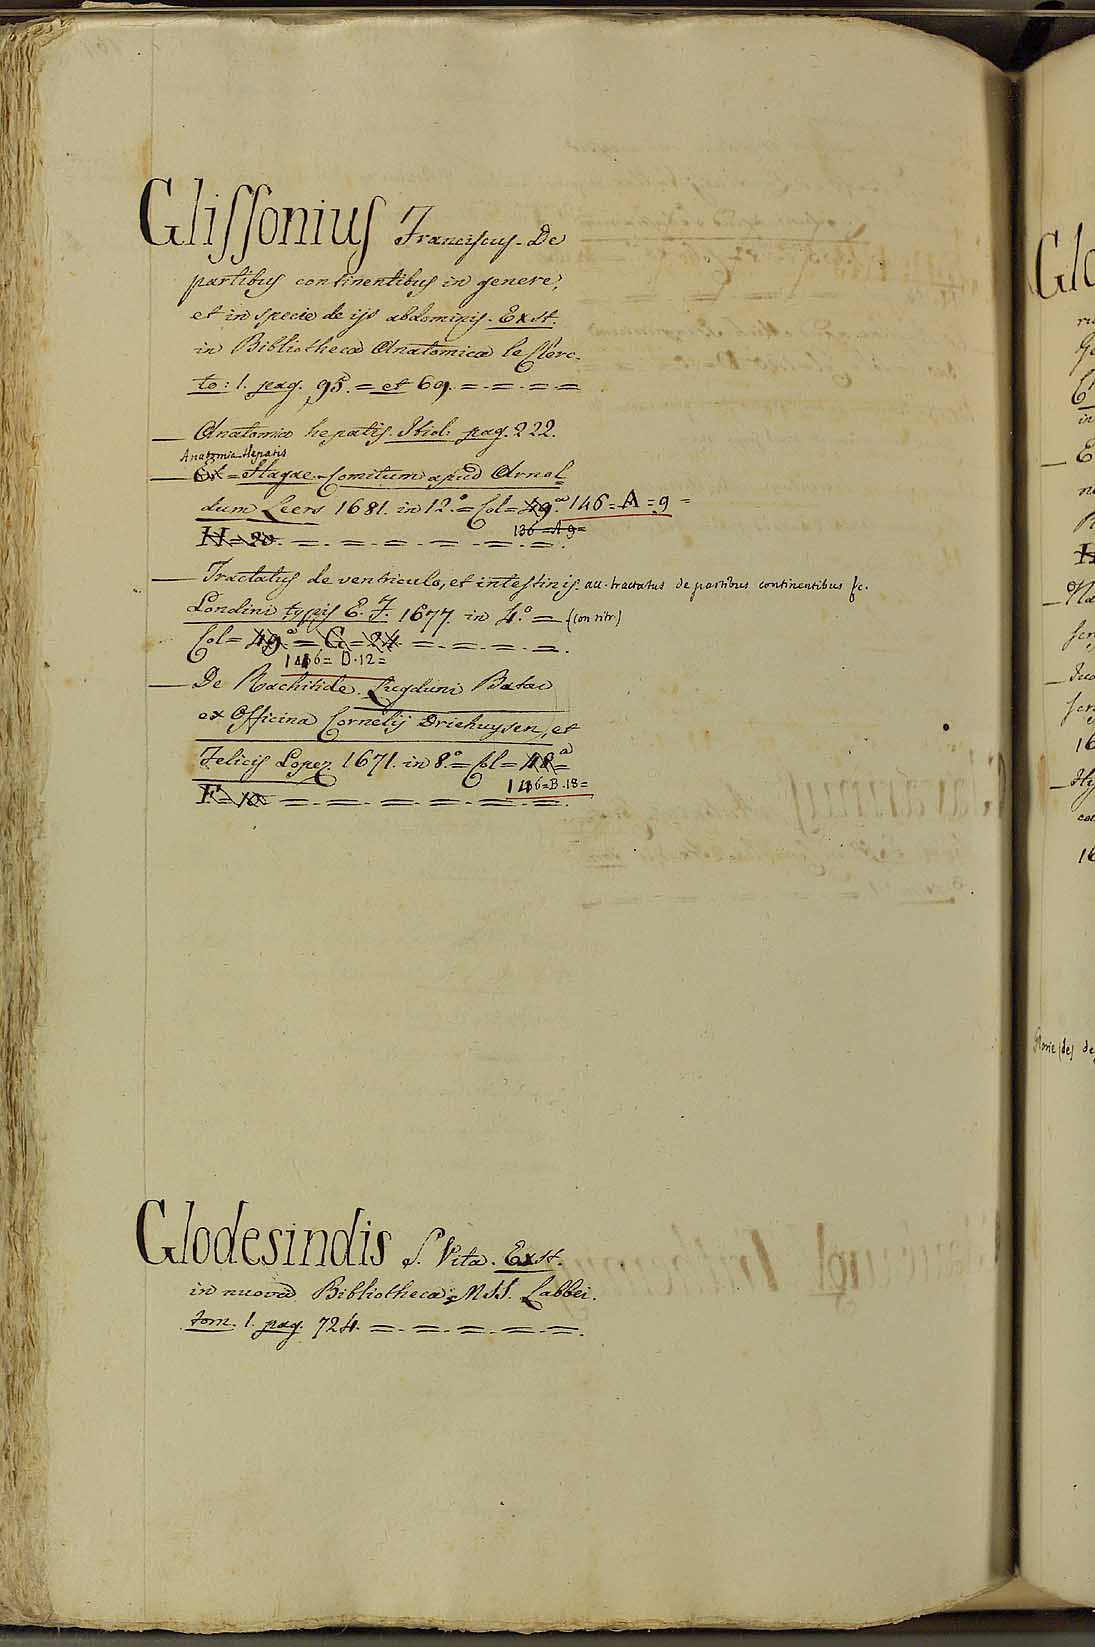 Glissonius Franciscus. De
partibus continentibus in genere,
et in specie de ijs abdominis. Exst.
in Bibliotheca Anatomica le Clerc.
to: 1. pag. 95. = et 69. = = = =
— Anatomia hepatis. Ibid. pag. 222.
Anatomia Hepatis
— Ex. = Hagae-Comitum apud Arnol
dum Leers 1681. in 12.° = Col = 49.a 146 = A = 9 =
136 = A 9 =
H = 20. = = = = = =.
— Tractatus de ventriculo, et intestinis. acc. tractatus de partibus continentibus &c.
Londini typis E. F. 1677. in 4.° = (con ritr.)
Col = 49.a = G = 24 = = = =.
146 = D. 12 =
— De Rachitide. Lugduni Batav
ex Officina Cornelij Driehuysen, et
Felicis Lopez. 1671. in 8.° = Col = 48 a =
146 = B. 18 =
F = 10 = = = = = =.
Glodesindis S. Vita. Exst.
in nuova Bibliotheca MSS. Labbei.
tom. 1. pag. 724. = = = = =.